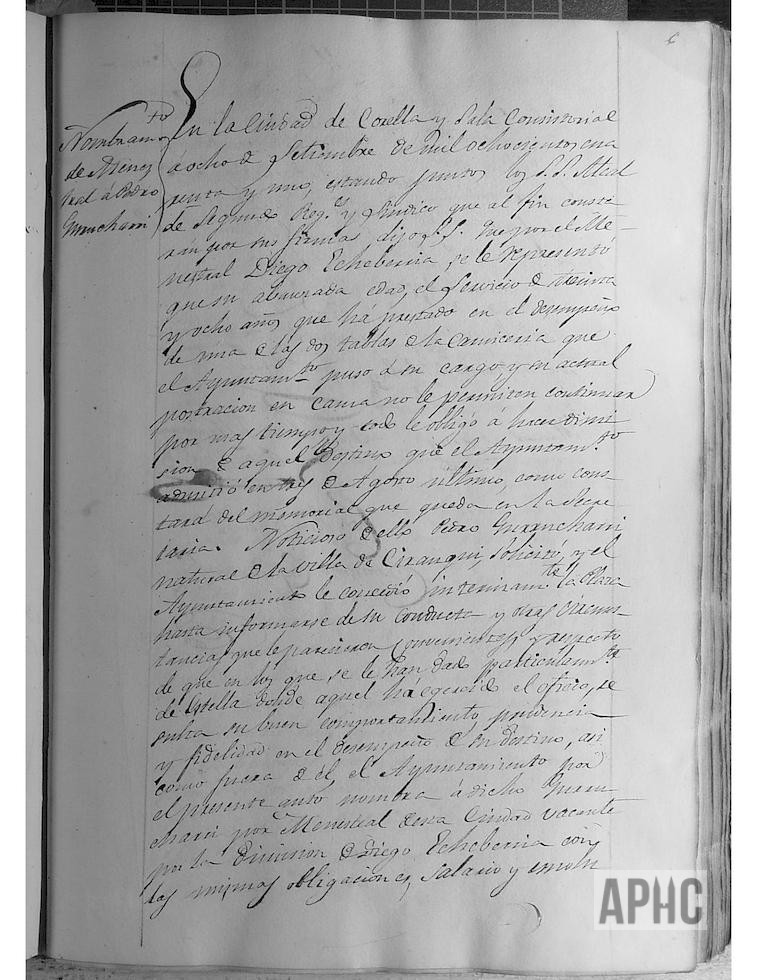 6
Nombram.to
de Menes
tral á Pedro
Gurucharri
En la Ciudad de Corella y Sala Consistorial
a ocho de Setiembre de mil ochocientos cua
renta y uno, estando juntos los S.S. Alcal
de segundo Reg.es y Sindico que al fin consta
rán por sus firmas dijo S.S. que por el Me-
nestral Diego Echeberria, se le representó
que su abanzada edad, el Servicio de treinta
y ocho años que ha prestado en el desempeño
de una de las dos tablas de la Carniceria que
el Ayuntam.to puso á su cargo y su actual
postracion en cama no le permiten continuar
por mas tiempo y todo le obligó á hacer dimi
sion de aquel destino que el Ayuntam.to
admitió en tres de Agosto último, como cons
tará del memorial que queda en la Secre
taria. Noticioso de ello Pedro Gurucharri
natural de la villa de Cirauqui, solicitó, y el
Ayuntamiento le concedió interinam.te la Plaza
hasta informarse de su conducta y otras circuns
tancias que le parecieron convenientes, y respecto
de que en los que se le han dado particularm.te
de Estella donde aquel ha egercido el oficio, re
sulta su buen comportamiento, prudencia
y fidelidad en el desempeño de su destino, asi
como fuera de él, el Ayuntamiento por
el presente auto nombra á dicho Guru
charri por Menestral de esta Ciudad vacante
por la dimision de Diego Echeberria con
las mismas obligaciones, salario y emolu
APHC